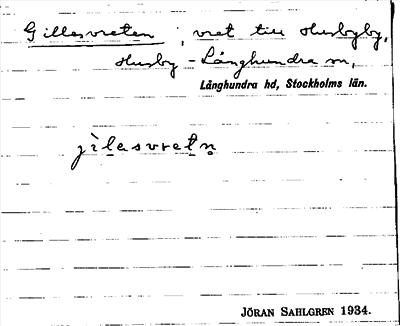 Gillesvreten, vret till Husbyby,
Husby-Långhundra sn,
Långhundra hd, Stockholms län.
jìlesvretn
JÖRAN SAHLGREN 1934.